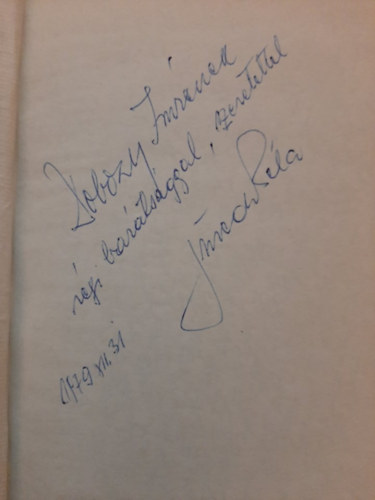 Dobozy Imrének
régi barátsággal, szeretettel
Béla
1979 XII. 31